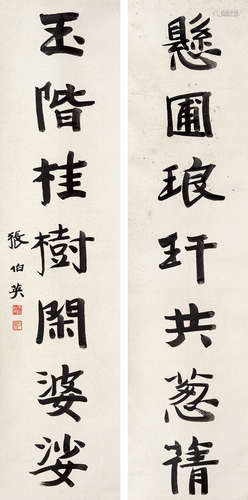 懸圃琅玕共蔥蒨
玉階桂樹閑婆娑
張伯英